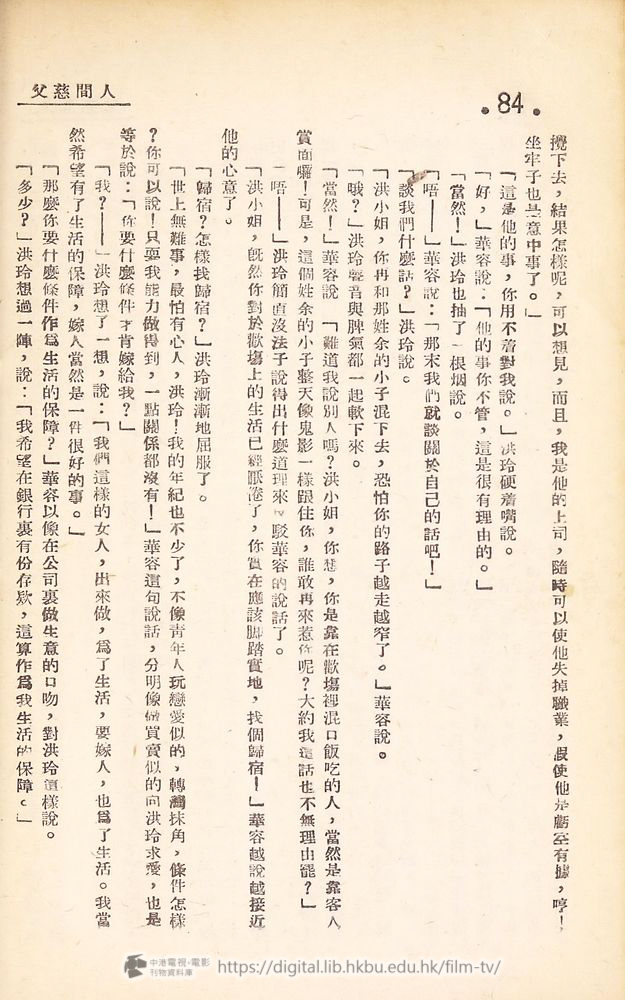 父慈間人
.84.
攪下去，結果怎樣呢，可以想見，而且，我是他的上司，隨時可以使他失掉職業，假使他是虧空有據，哼！
坐牢子也是意中事了。」
「這是他的事，你用不着對我說。」洪玲硬着嘴說。
「好，」華容說：「他的事你不管，這是很有理由的。」
「當然！」洪玲也抽了一根烟說。
「唔——」華容說：「那末我們就談關於自己的話吧！」
「談我們什麼話？」洪玲說。
「洪小姐，你再和那姓余的小子混下去，恐怕你的路子越走越窄了。」華容說。
「哦？」洪玲聲音與脾氣都一起軟下來。
「當然！」華容說　「難道我說別人嗎？洪小姐，你想，你是靠在歡塲裡混口飯吃的人，當然是靠客人
賞面囉！可是，這個姓余的小子整天像鬼影一樣跟住你，誰敢再來惹你呢？大約我這話也不無理由罷？」
「唔——」洪玲簡直沒法子說得出什麼道理來反駁華容的說話了。
「洪小姐，旣然你對於歡塲上的生活已經厭倦了，你實在應該脚踏實地，找個歸宿！」華容越說越接近
他的心意了。
「歸宿？怎樣找歸宿？」洪玲漸漸地屈服了。
「世上無難事，最怕有心人，洪玲！我的年紀也不少了，不像靑年人玩戀愛似的，轉灣抹角，條件怎樣
？你可以說！只要我能力做得到，一點關係都沒有！」華容這句說話，分明像做買賣似的向洪玲求愛，也是
等於說：「你要什麼條件才肯嫁給我？」
「我？——」洪玲想了一想，說：「我們這樣的女人，出來做，爲了生活，要嫁人，也爲了生活。我當
然希望有了生活的保障，嫁人當然是一件很好的事。」
「那麼你要什麼條件作爲生活的保障？」華容以像在公司裏做生意的口吻，對洪玲這樣說。
「多少？」洪玲想過一陣，說：「我希望在銀行裏有份存欵，這算作爲我生活的保障。」
中港電視・電影
刊物資料庫
https://digital.lib.hkbu.edu.hk/film-tv/